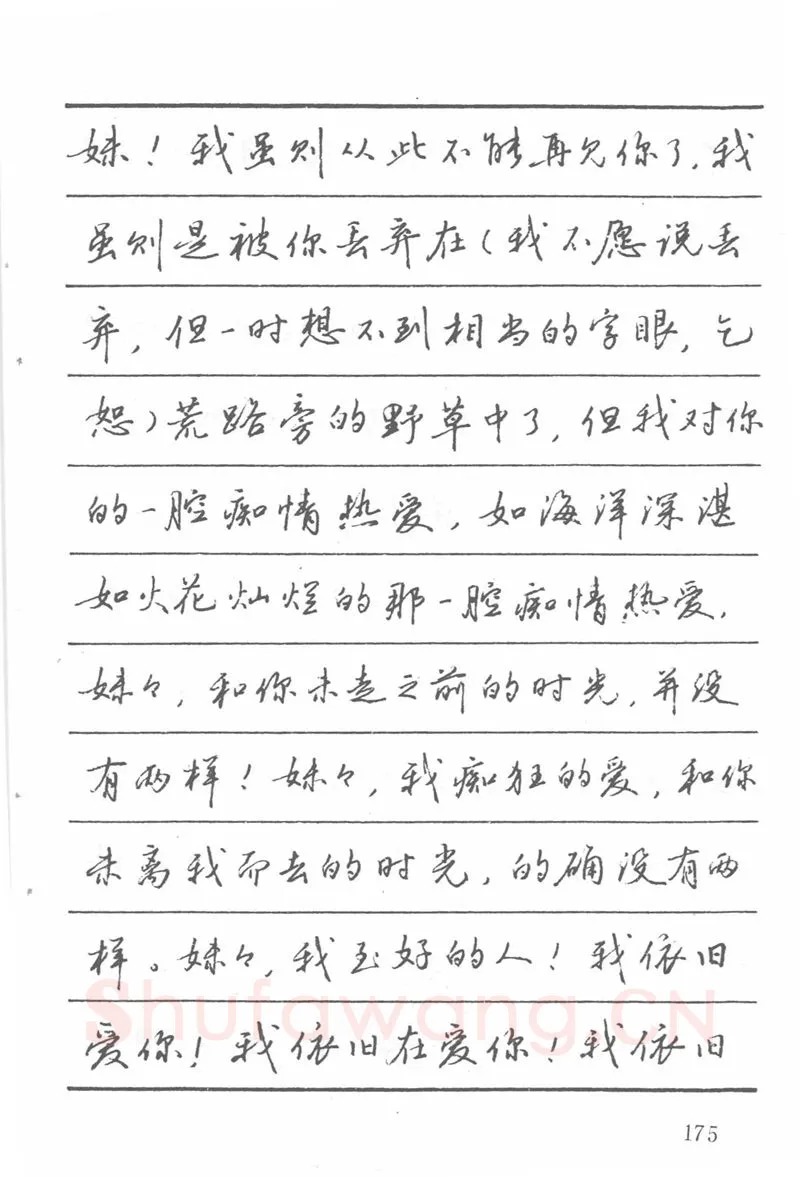 妹！我虽则从此不能再见你了，我
虽则是被你丢弃在（我不愿说丢
弃，但一时想不到相当的字眼，乞
恕）荒路旁的野草中了，但我对你
的一腔痴情热爱，如海洋深湛
如火花灿烂的那一腔痴情热爱，
妹々，和你未走之前的时光，并没
有两样！妹々，我痴狂的爱，和你
未离我而去的时光，的确没有两
样。妹々，我至好的人！我依旧
爱你！我依旧在爱你！我依旧
Shufawang.CN
175